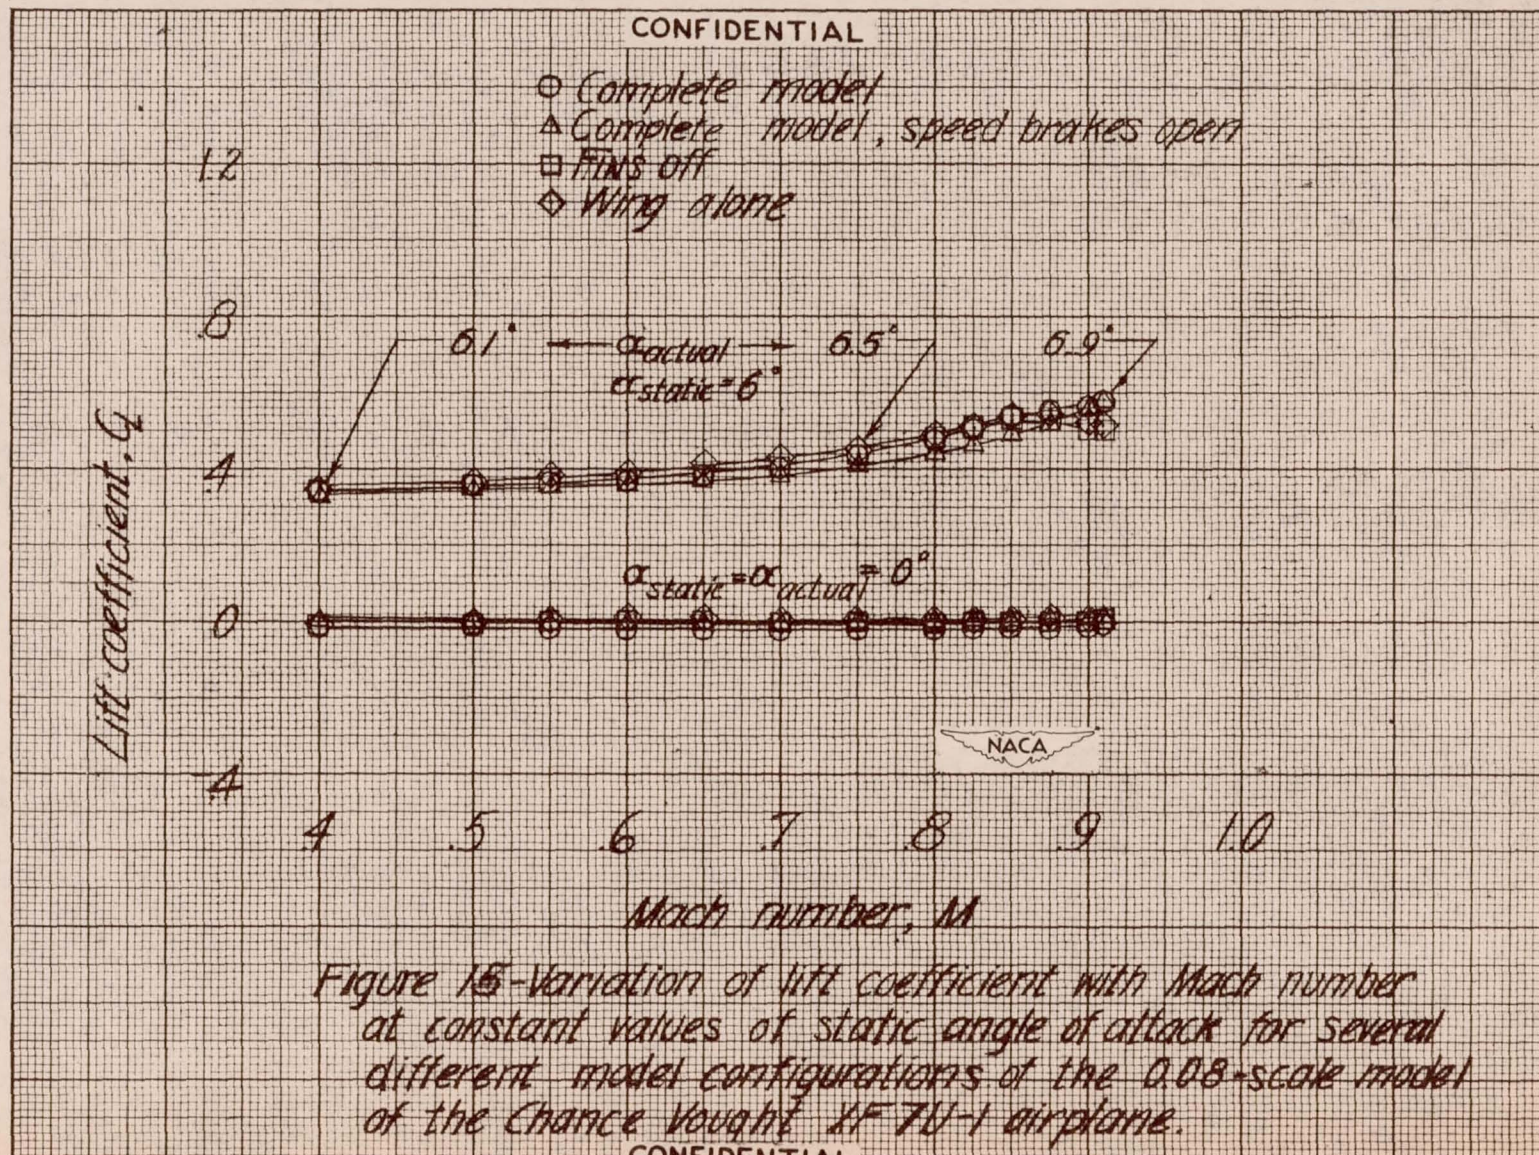 CONFIDENTIAL
Complete model
Complete model, speed brakes open
FINS off
Wing alone
1.2
.8
6.1° α actual 6.5° 6.9°
α static = 6°
.4
α static = α actual = 0°
0
-.4
Lift coefficient, CL
NACA
.4 .5 .6 .7 .8 .9 1.0
Mach number, M
Figure 15-Variation of lift coefficient with Mach number
at constant values of static angle of attack for several
different model configurations of the 0.08-scale model
of the Chance Vought XF7U-1 airplane.
CONFIDENTIAL